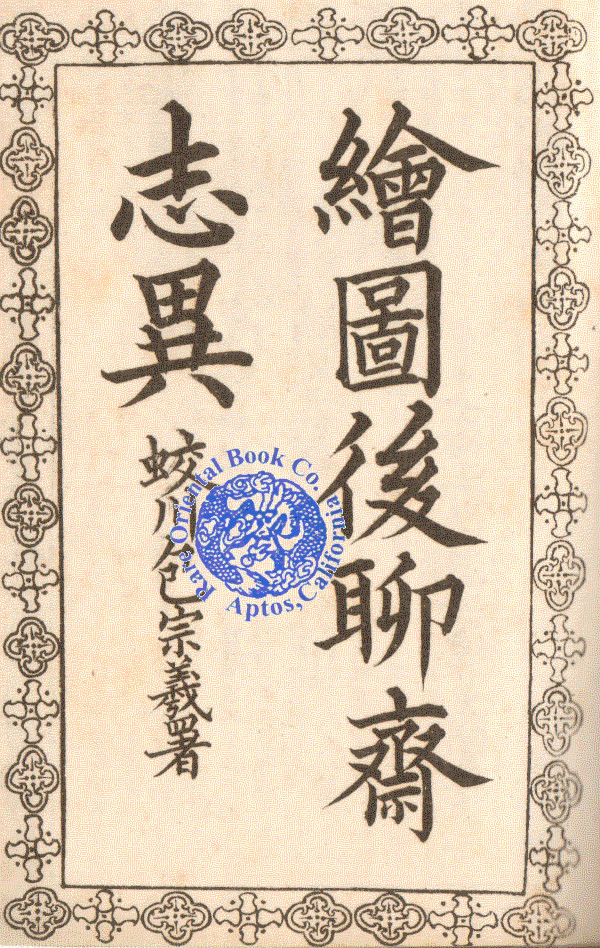 繪圖後聊齋
志異
蛟川包宗羲署
Rare Oriental Book Co.
Aptos, California